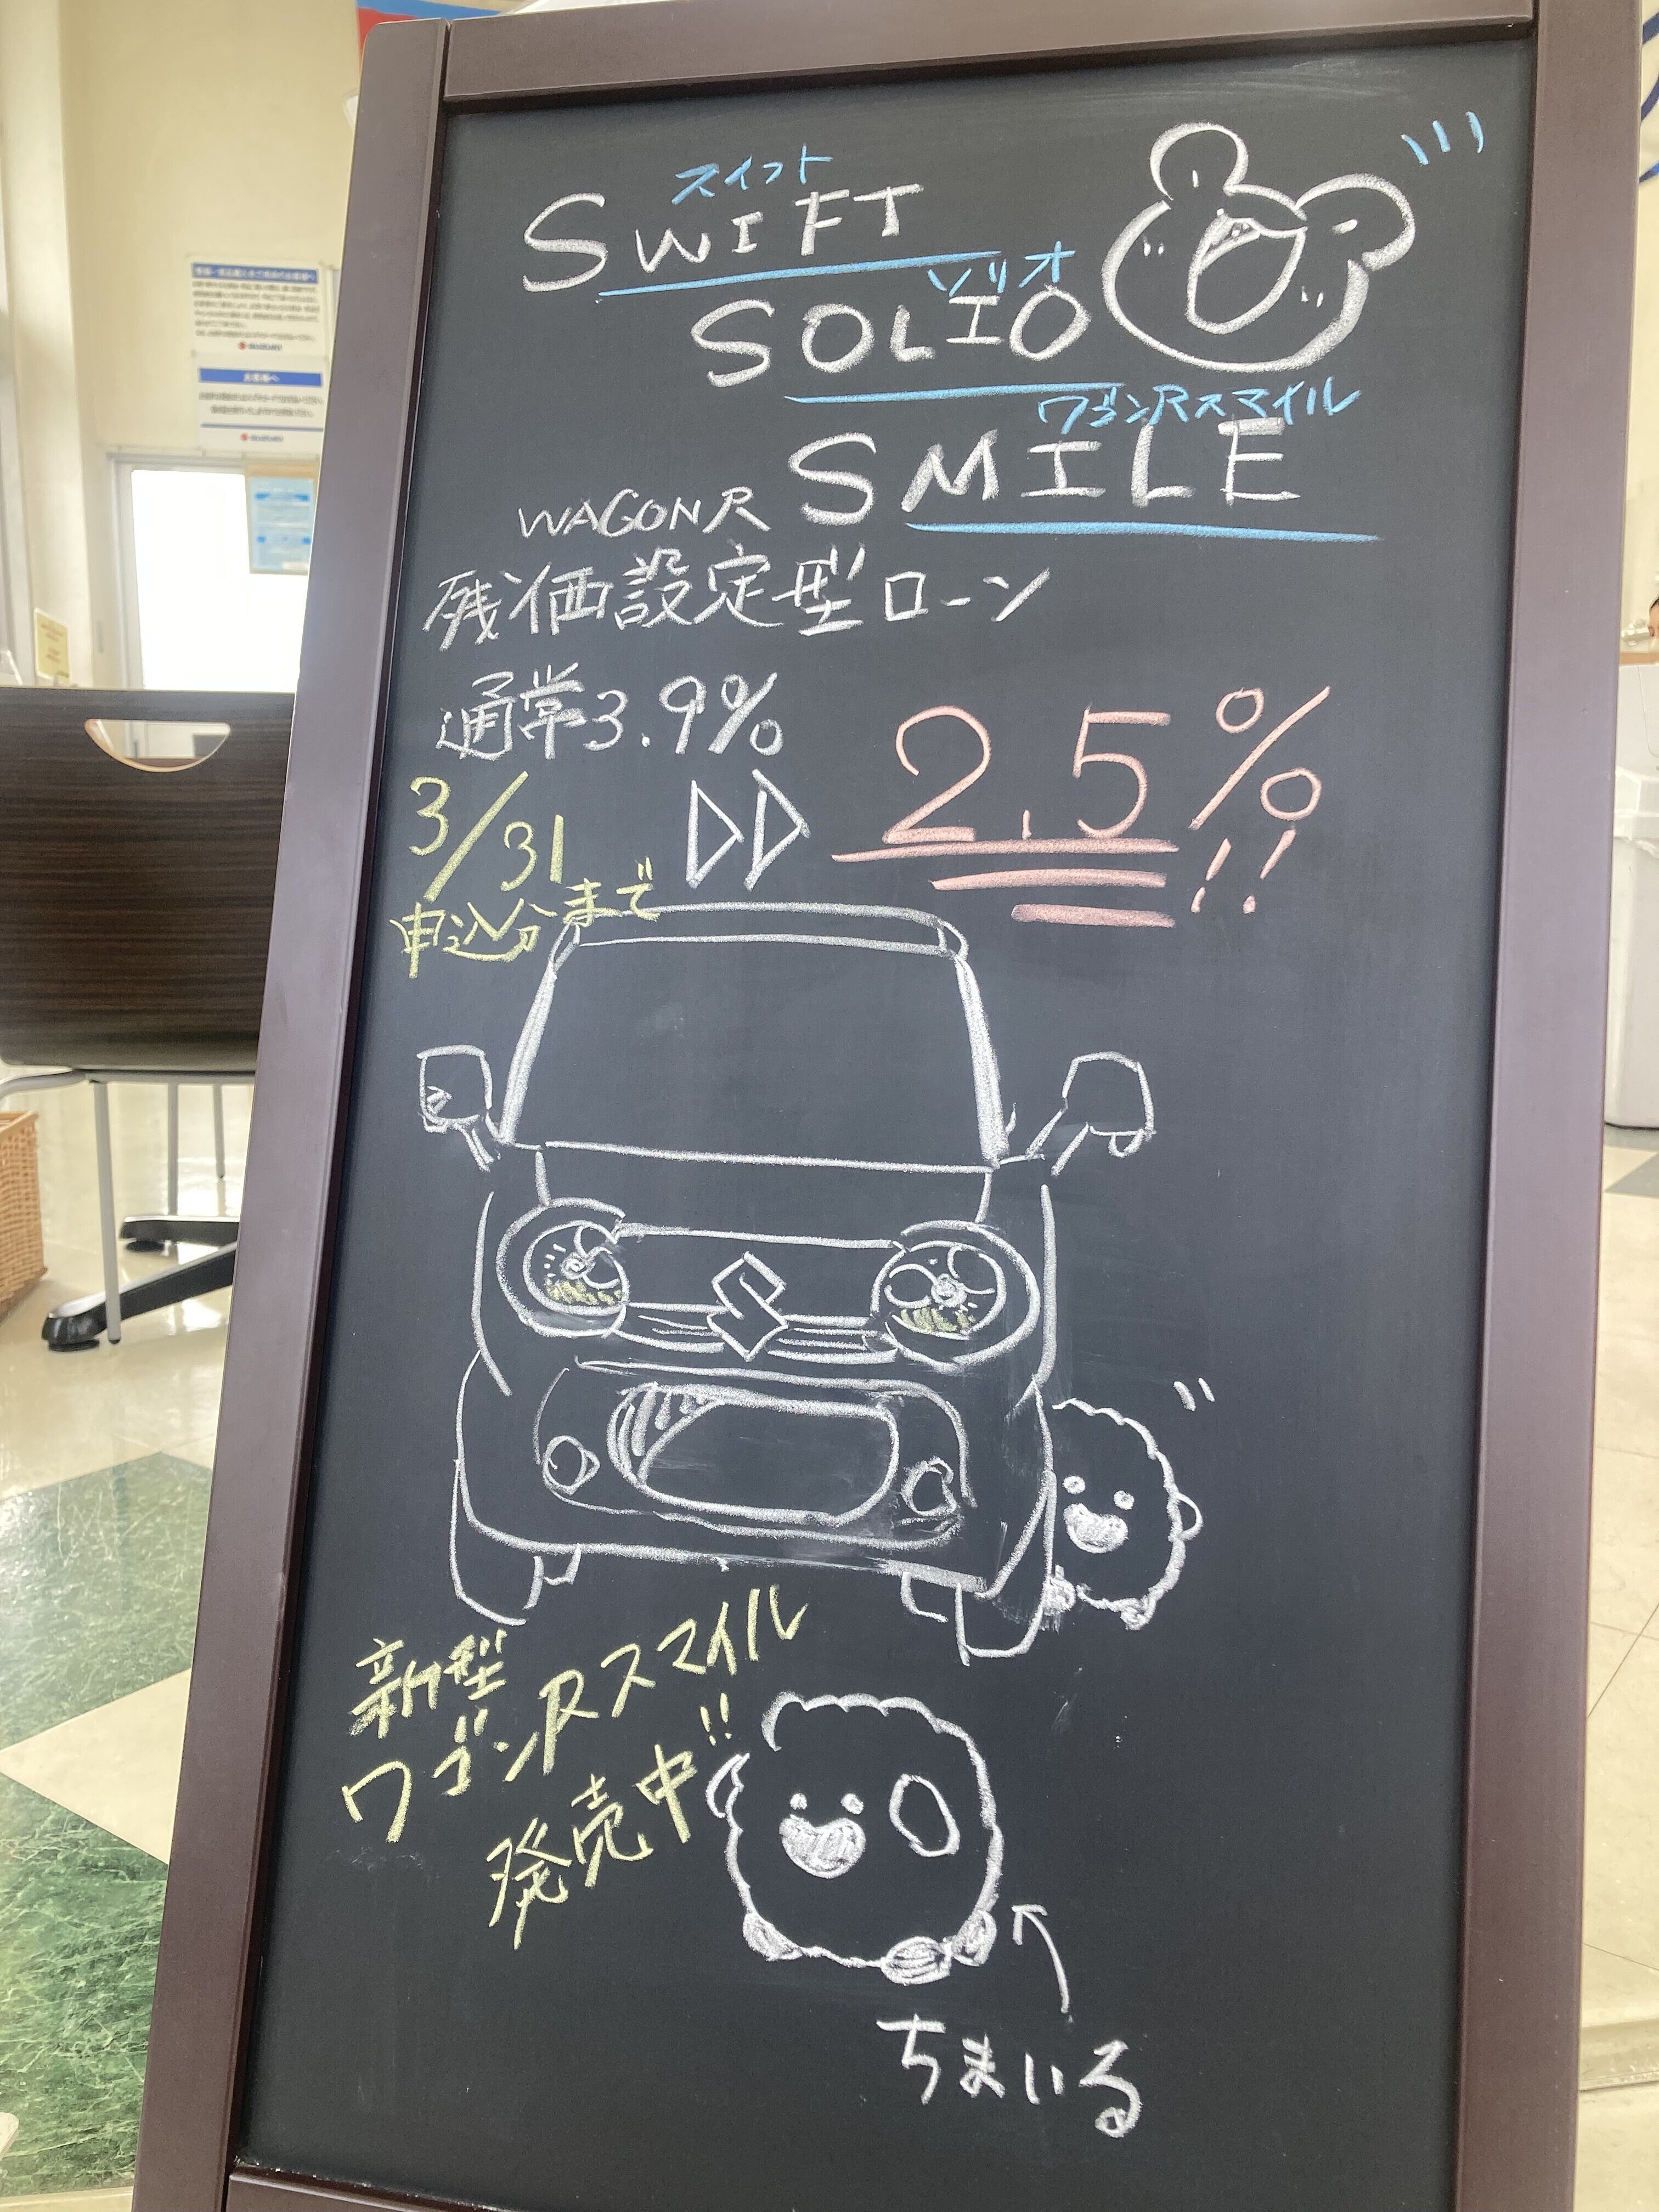 スイフト
SWIFT
ソリオ
SOLIO
ワゴンRスマイル
WAGONR SMILE
残価設定型ローン
通常3.9%
2.5%!!
3/31
申込分まで
新型
ワゴンRスマイル
発売中!!
ちまいる
お客様へ
SUZUKI